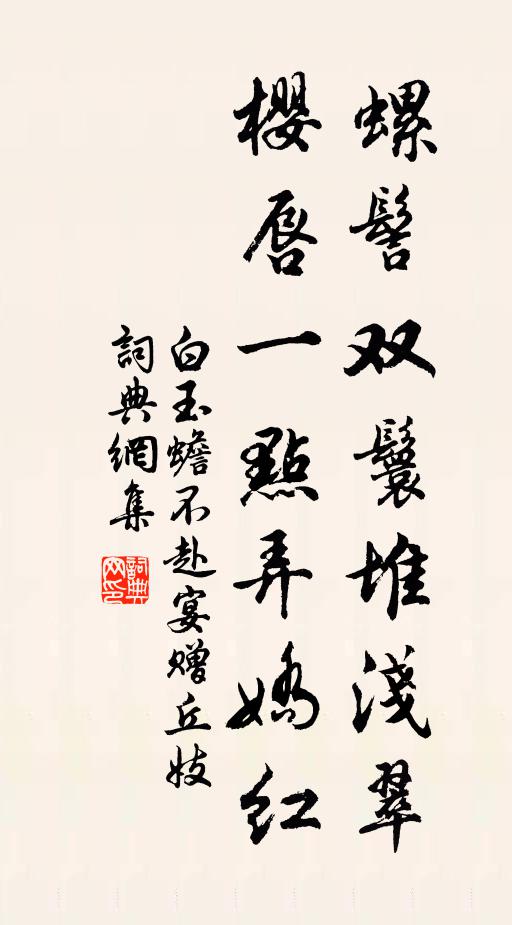 螺髻双鬟堆淺翠
櫻唇一點弄嬌紅
白玉蟾不赴宴赠丘妓
詞典網集
詞典网印